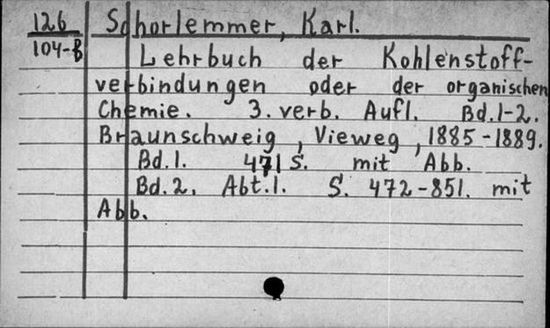 126 Schorlemmer, Karl.
104-B Lehrbuch der Kohlenstoff-
verbindungen oder der organischen
Chemie. 3. verb. Aufl. Bd.1-2.
Braunschweig, Vieweg, 1885-1889.
Bd.1. 471 S. mit Abb.
Bd.2. Abt.1. S. 472-851. mit
Abb.